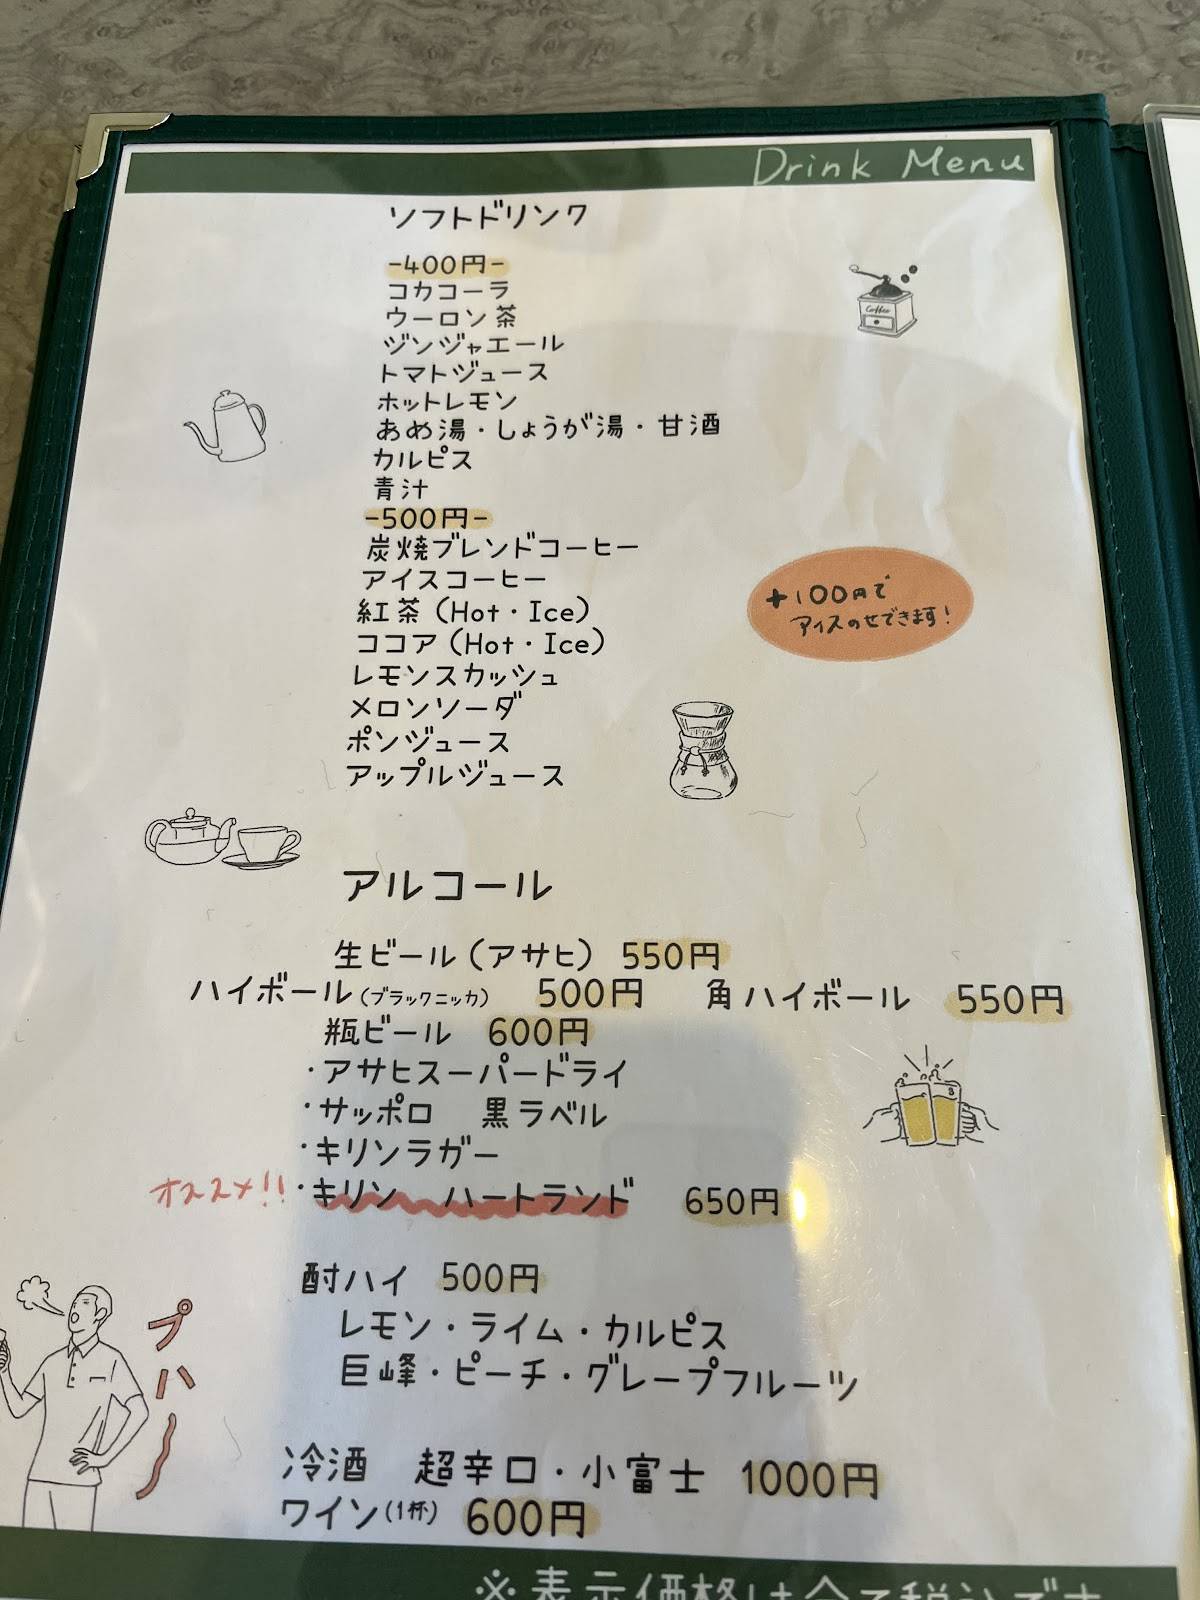 Drink Menu
ソフトドリンク
-400円-
コカコーラ
ウーロン茶
ジンジャエール
トマトジュース
ホットレモン
あめ湯・しょうが湯・甘酒
カルピス
青汁
-500円-
炭焼ブレンドコーヒー
アイスコーヒー
紅茶(Hot・Ice)
ココア(Hot・Ice)
レモンスカッシュ
メロンソーダ
ポンジュース
アップルジュース
Coffee
+100円で
アイスのせできます!
アルコール
生ビール(アサヒ) 550円
ハイボール(ブラックニッカ) 500円 角ハイボール 550円
瓶ビール 600円
・アサヒスーパードライ
・サッポロ 黒ラベル
・キリンラガー
オススメ!!・キリン ハートランド 650円
酎ハイ 500円
レモン・ライム・カルピス
巨峰・ピーチ・グレープフルーツ
プハーッ
冷酒 超辛口・小富士 1000円
ワイン(1杯) 600円
※表示価格は全て税込です